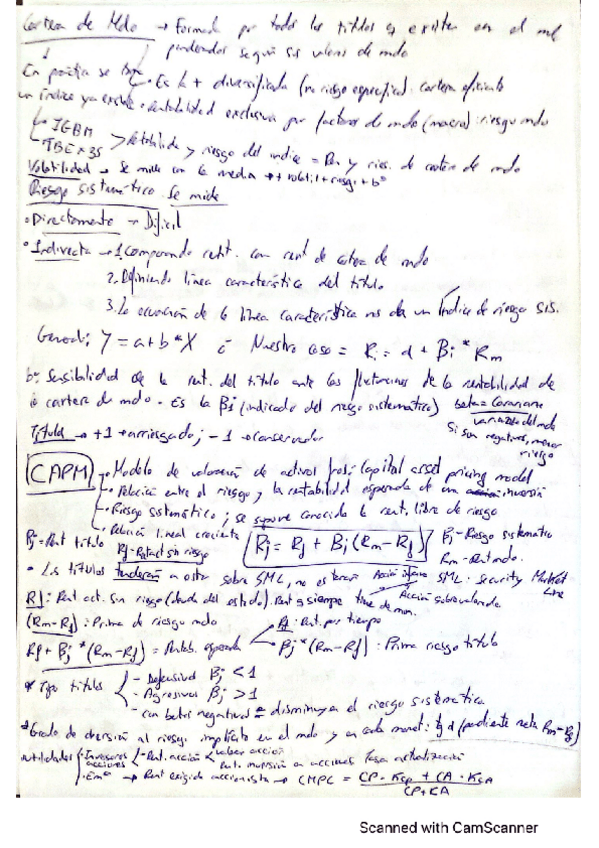 Cartera de Mdo → Formada por todos los títulos q existen en el
ponderados según sus valores de mdo
En práctica se • Es la + diversificada (no riesgo específico). cartera eficiente
un índice ya existe • Rentabilidad exclusiva por factores de mdo (macro): riesgo mdo
IGBM
IBEX 35 > Rentabilidad y riesgo del indice = Rm y ries. de cartera de mdo
Volatilidad → Se mide con la media → + volátil + riesgo + bº
Riesgo sistemático Se mide
• Directamente → Difícil
• Indirecta → 1. Comparando rent. con rent de cartera de mdo
2. Definiendo línea característica del título
3. La ecuación de la línea característica nos da un índice de riesgo sis.
General: Y = a + b * X Nuestro caso = Ri = α + Bi * Rm
b: Sensibilidad de la rent. del título ante las fluctuaciones de la rentabilidad de
la cartera de mdo. Es la Bj (indicador del riesgo sistemático) beta = Covarianza
varianza del mdo
Si son negativas, menor
riesgo
Títulos → +1 → arriesgado; -1 → conservador
CAPM • Modelo de valoración de activos : Capital asset pricing model
• Relación entre el riesgo y la rentabilidad esperada de una inversión
• Riesgo sistemático; se supone conocida la rent. libre de riesgo
• Relación lineal creciente
Rj = Rent título Rj = Rf + Bj (Rm - Rf) Bj = Riesgo sistemático
Rf = Rent act sin riesgo Rm = Rent mdo.
• Los títulos tenderán a estar sobre SML, no estarán SML: Security Market
Line
Acción sobrevalorada
Rf: Rent act. sin riesgo (deuda del estado). Rent q siempre tiene de min.
(Rm - Rf): Prima de riesgo mdo Rf: Rent. por tiempo
Rf + Bj * (Rm - Rf) = Rentab. esperada Bj * (Rm - Rf): Prima riesgo título
* Tipo títulos - Defensivos Bj < 1
- Agresivos Bj > 1
- con betas negativas = disminuyen el riesgo sistemático
* Grado de aversión al riesgo implícito en el mdo y en cada momet: tg α (pendiente recta Rm - Rf)
utilidades • Inversores acciones • Rent. acción < valorar acción
Rent. inversión en acciones tasa actualización
• Emª → Rent exigida accionista → CMPC = CP · Kcp + CA · KCA
CP + CA
Scanned with CamScanner